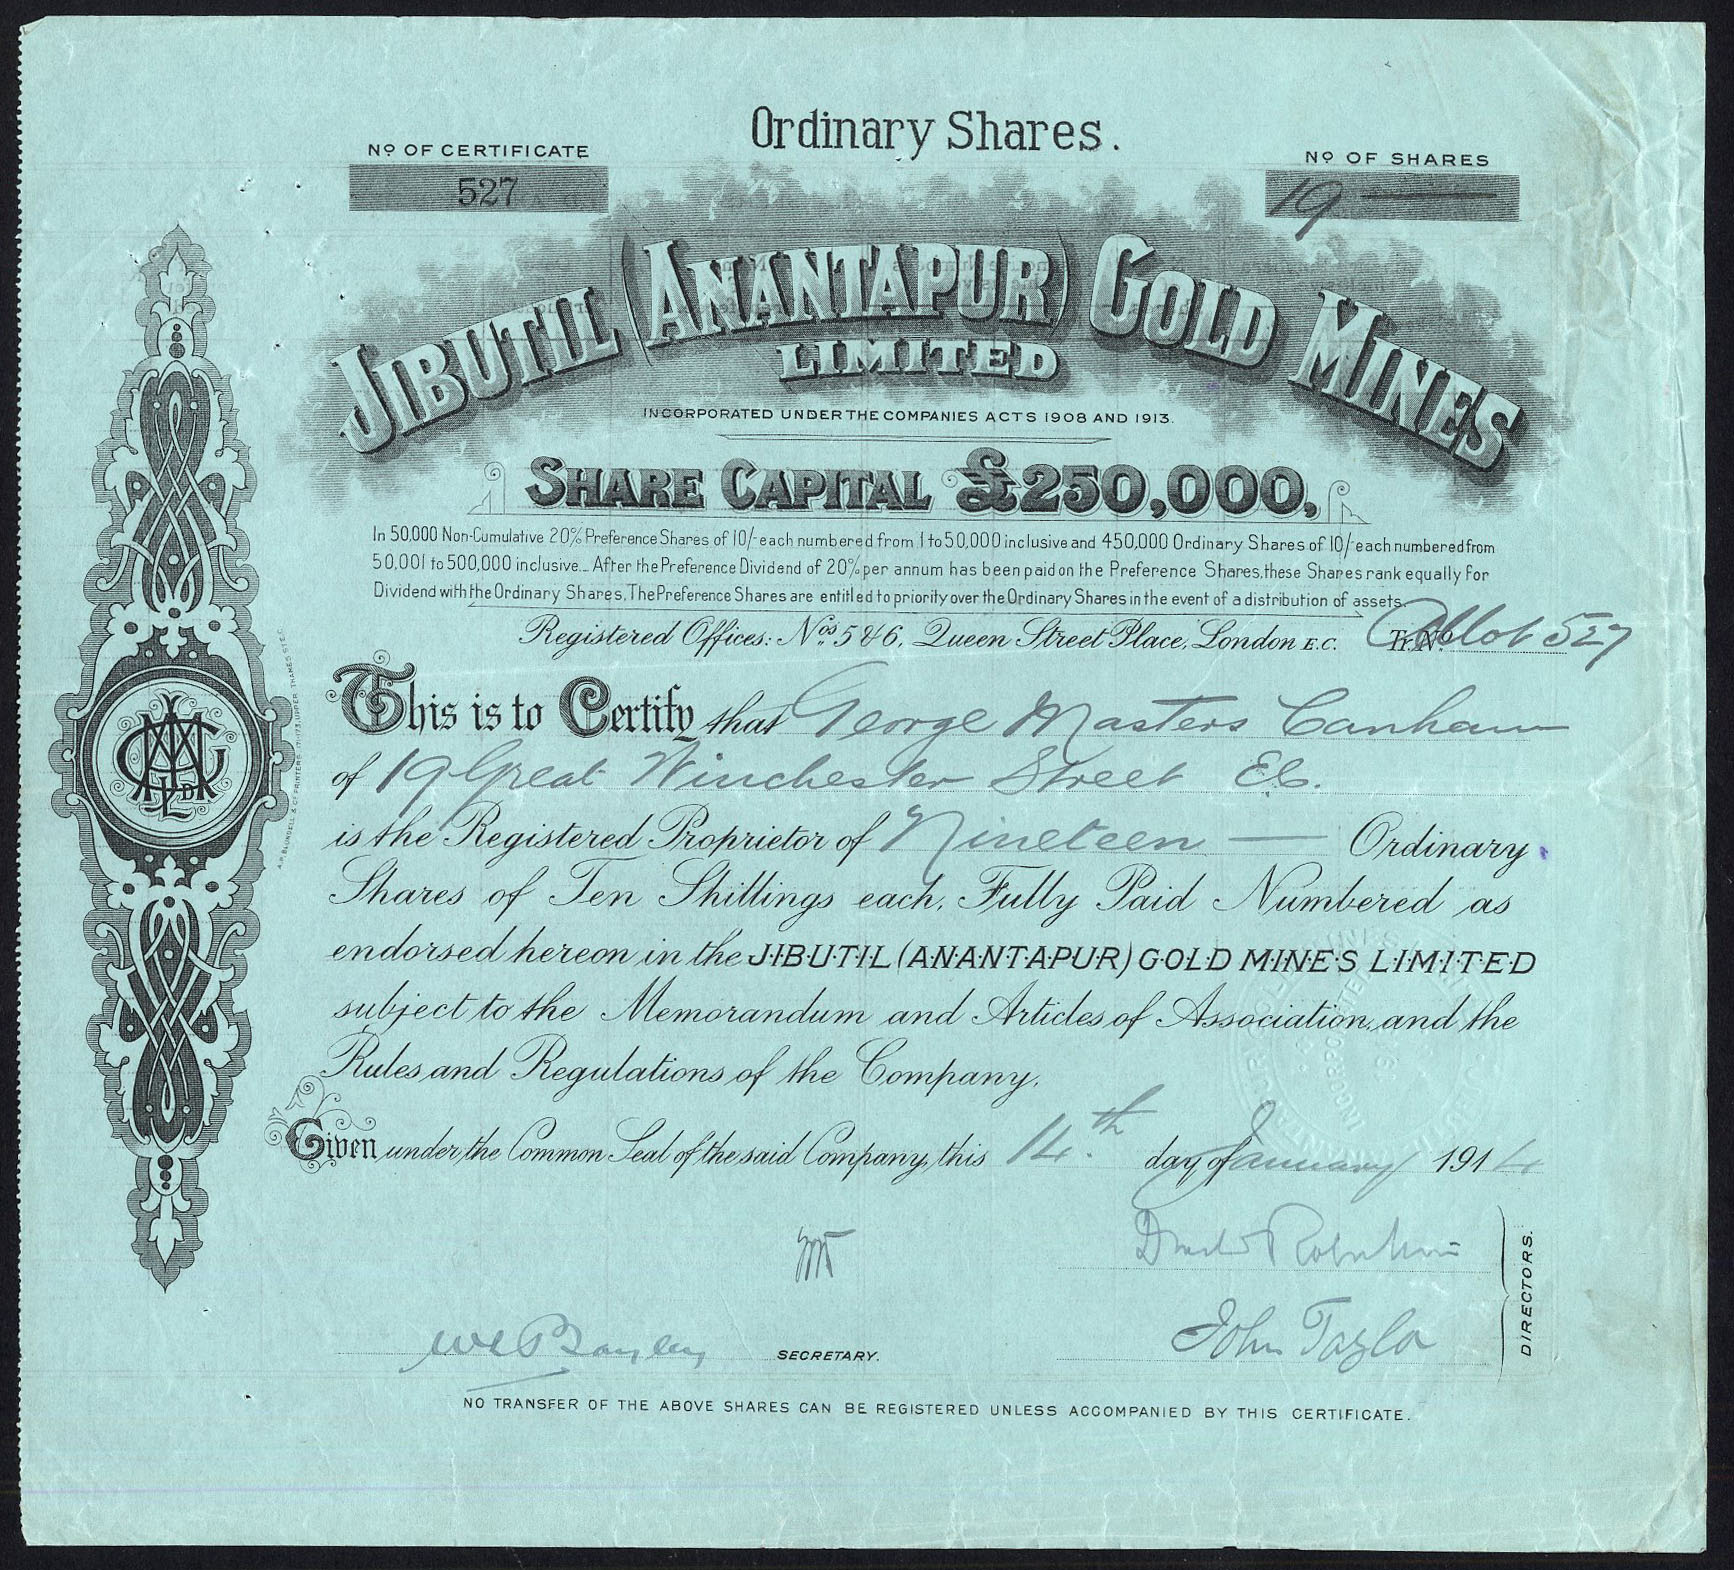 Ordinary Shares.
Nº OF CERTIFICATE
527
Nº OF SHARES
19
JIBUTIL (ANANTAPUR) GOLD MINES
LIMITED
INCORPORATED UNDER THE COMPANIES ACTS 1908 AND 1913.
SHARE CAPITAL £250,000,
In 50,000 Non-Cumulative 20% Preference Shares of 10/- each numbered from 1 to 50,000 inclusive and 450,000 Ordinary Shares of 10/- each numbered from
50,001 to 500,000 inclusive. After the Preference Dividend of 20% per annum has been paid on the Preference Shares, these Shares rank equally for
Dividend with the Ordinary Shares, The Preference Shares are entitled to priority over the Ordinary Shares in the event of a distribution of assets.
Registered Offices: Nos. 5 & 6, Queen Street Place, London E.C. Tr. Nº Allot 527
This is to Certify that George Masters Canham
of 19 Great Winchester Street E.C.
is the Registered Proprietor of Nineteen — Ordinary
Shares of Ten Shillings each, Fully Paid Numbered as
endorsed hereon in the JIBUTIL (ANANTAPUR) GOLD MINES LIMITED
subject to the Memorandum and Articles of Association, and the
Rules and Regulations of the Company.
Given under the Common Seal of the said Company, this 14th day of January 1914
John Taylor
DIRECTORS.
SECRETARY.
NO TRANSFER OF THE ABOVE SHARES CAN BE REGISTERED UNLESS ACCOMPANIED BY THIS CERTIFICATE.